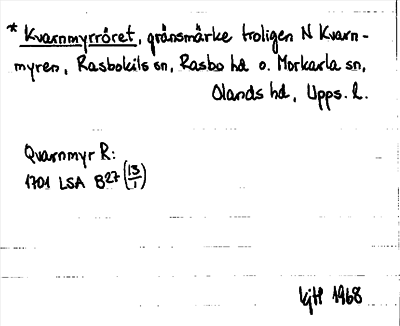 * Kvarnmyrröret, gränsmärke troligen N Kvarn-
myren, Rasbokils sn, Rasbo hd o. Morkarla sn,
Olands hd, Upps. l.
Qvarnmyr R:
1701 LSA B27 (13/1)
KjH 1968